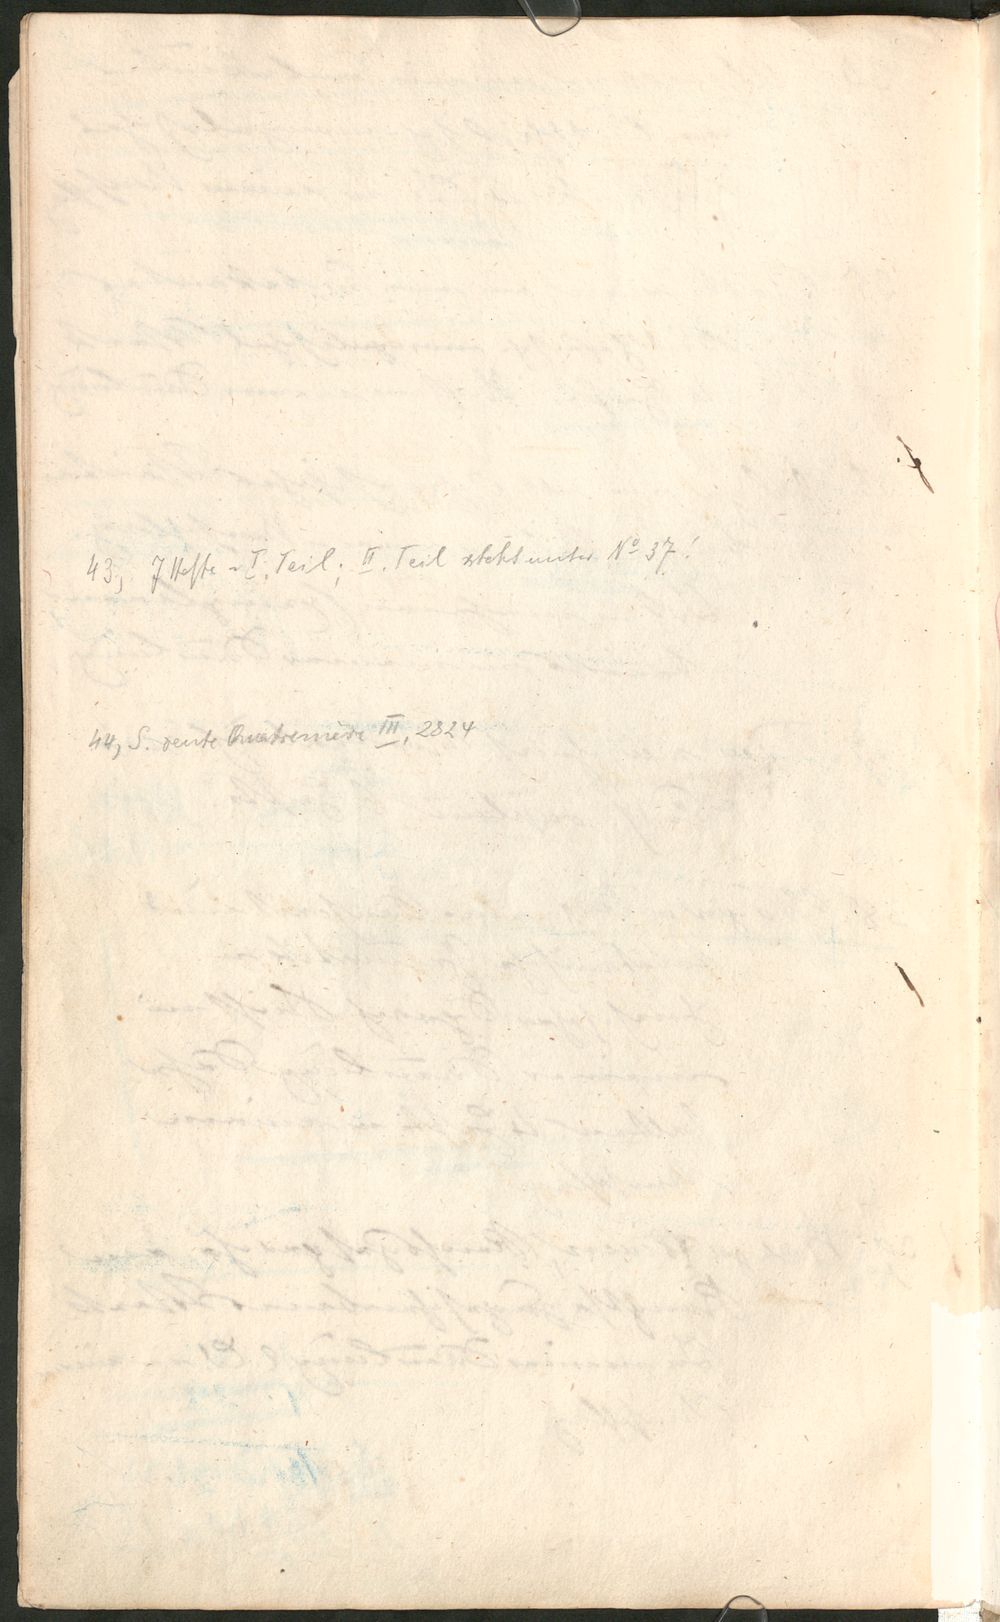 43, 7 Hefte = I. Teil; II. Teil steht unter Nº 37!
44, S. vente Quatremère III, 2824